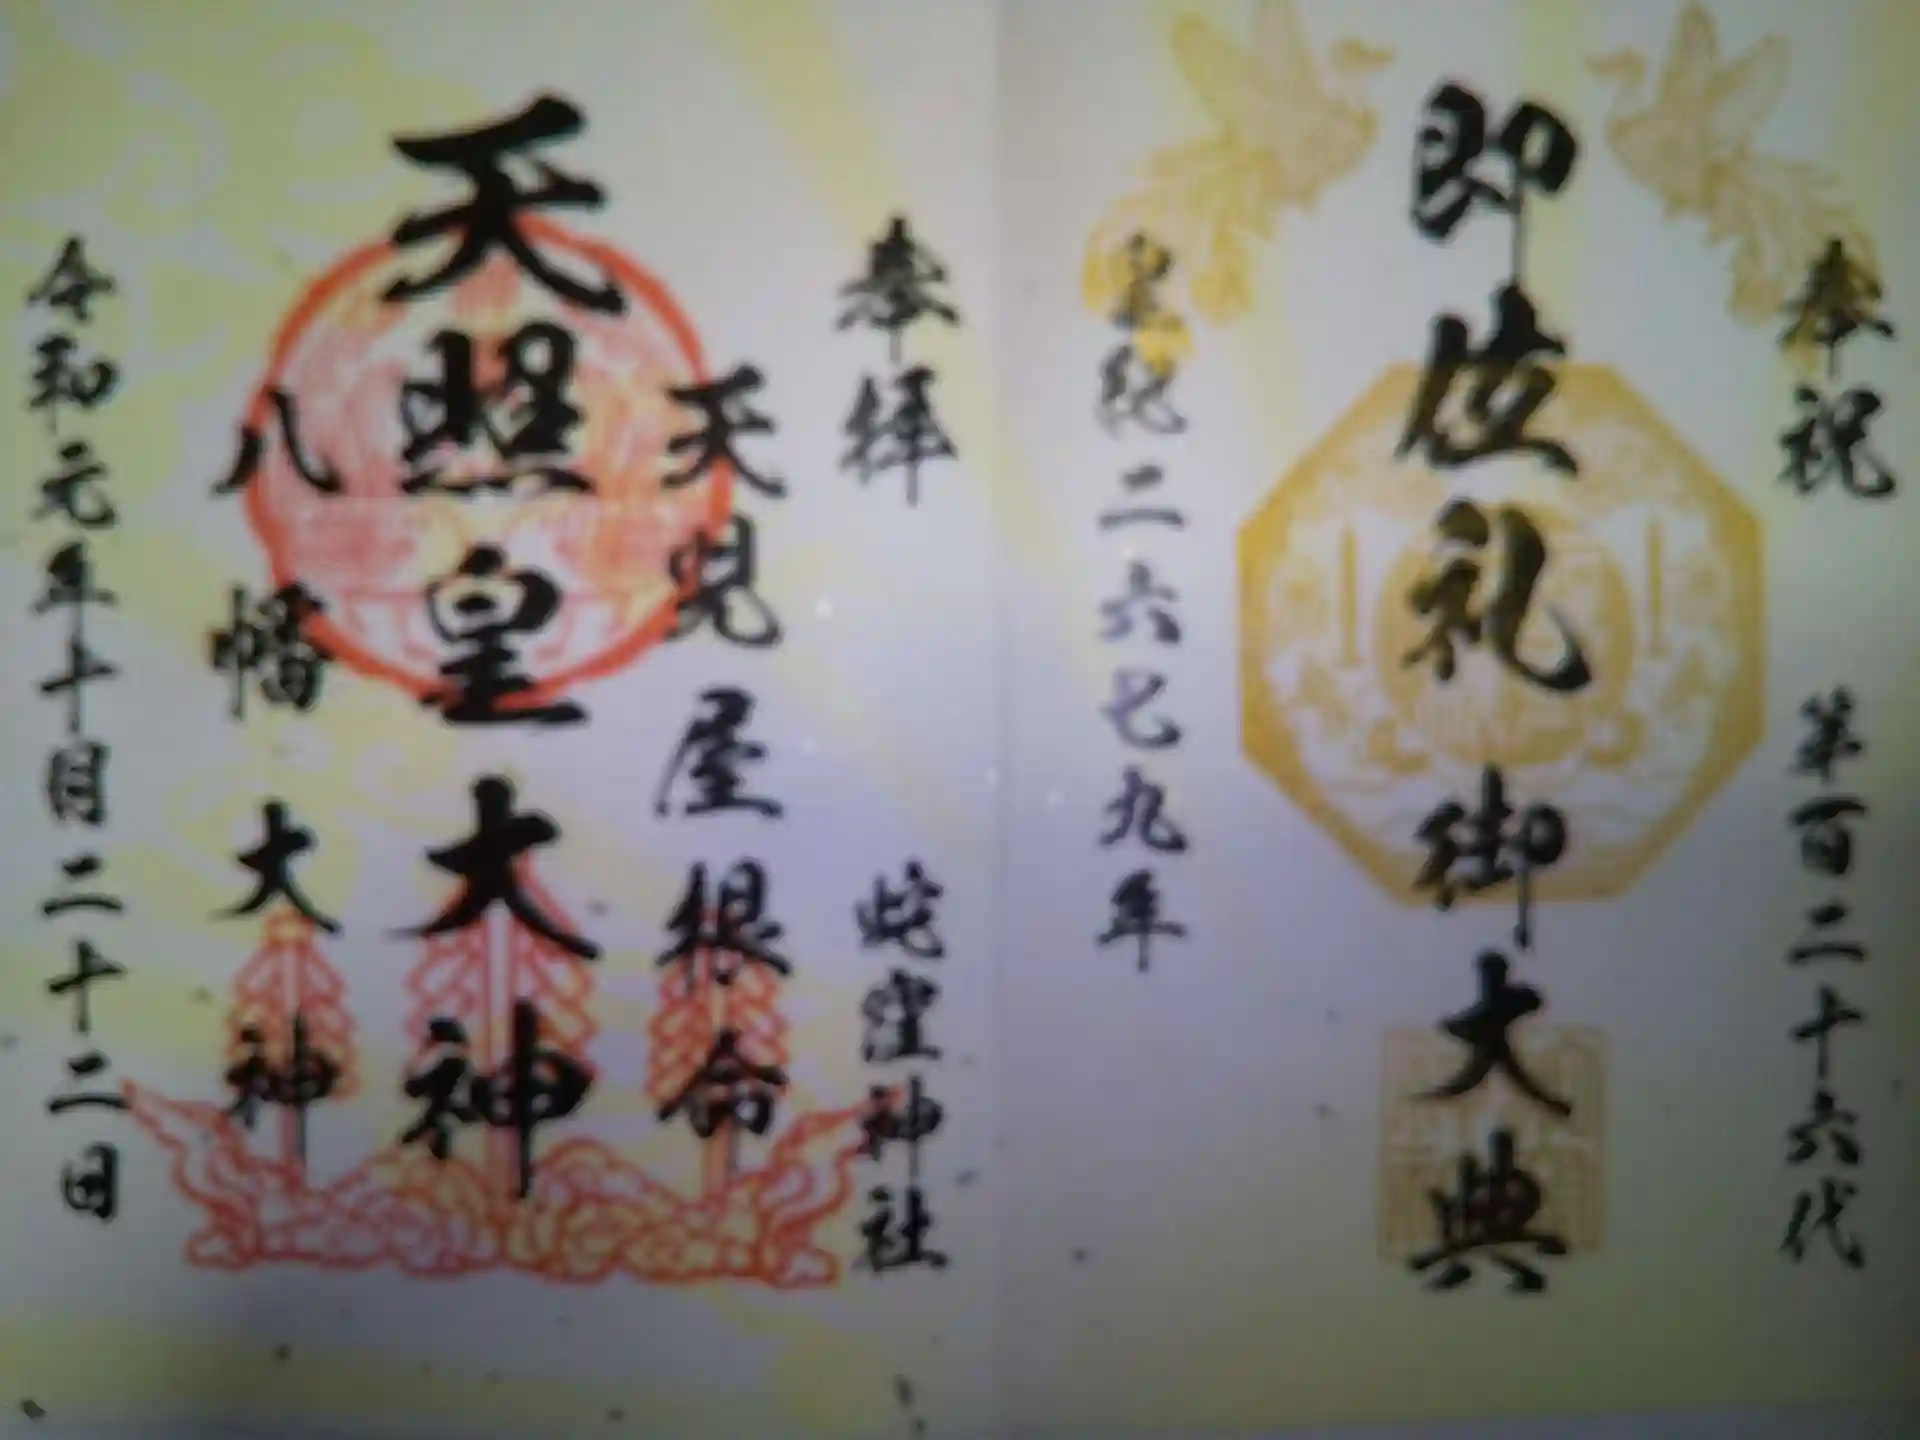 奉祝 第百二十六代
即位礼 御大典
皇紀二六七九年
奉拝 蛇窪神社
天児屋根命
天照皇大神
八幡大神
令和元年十月二十二日